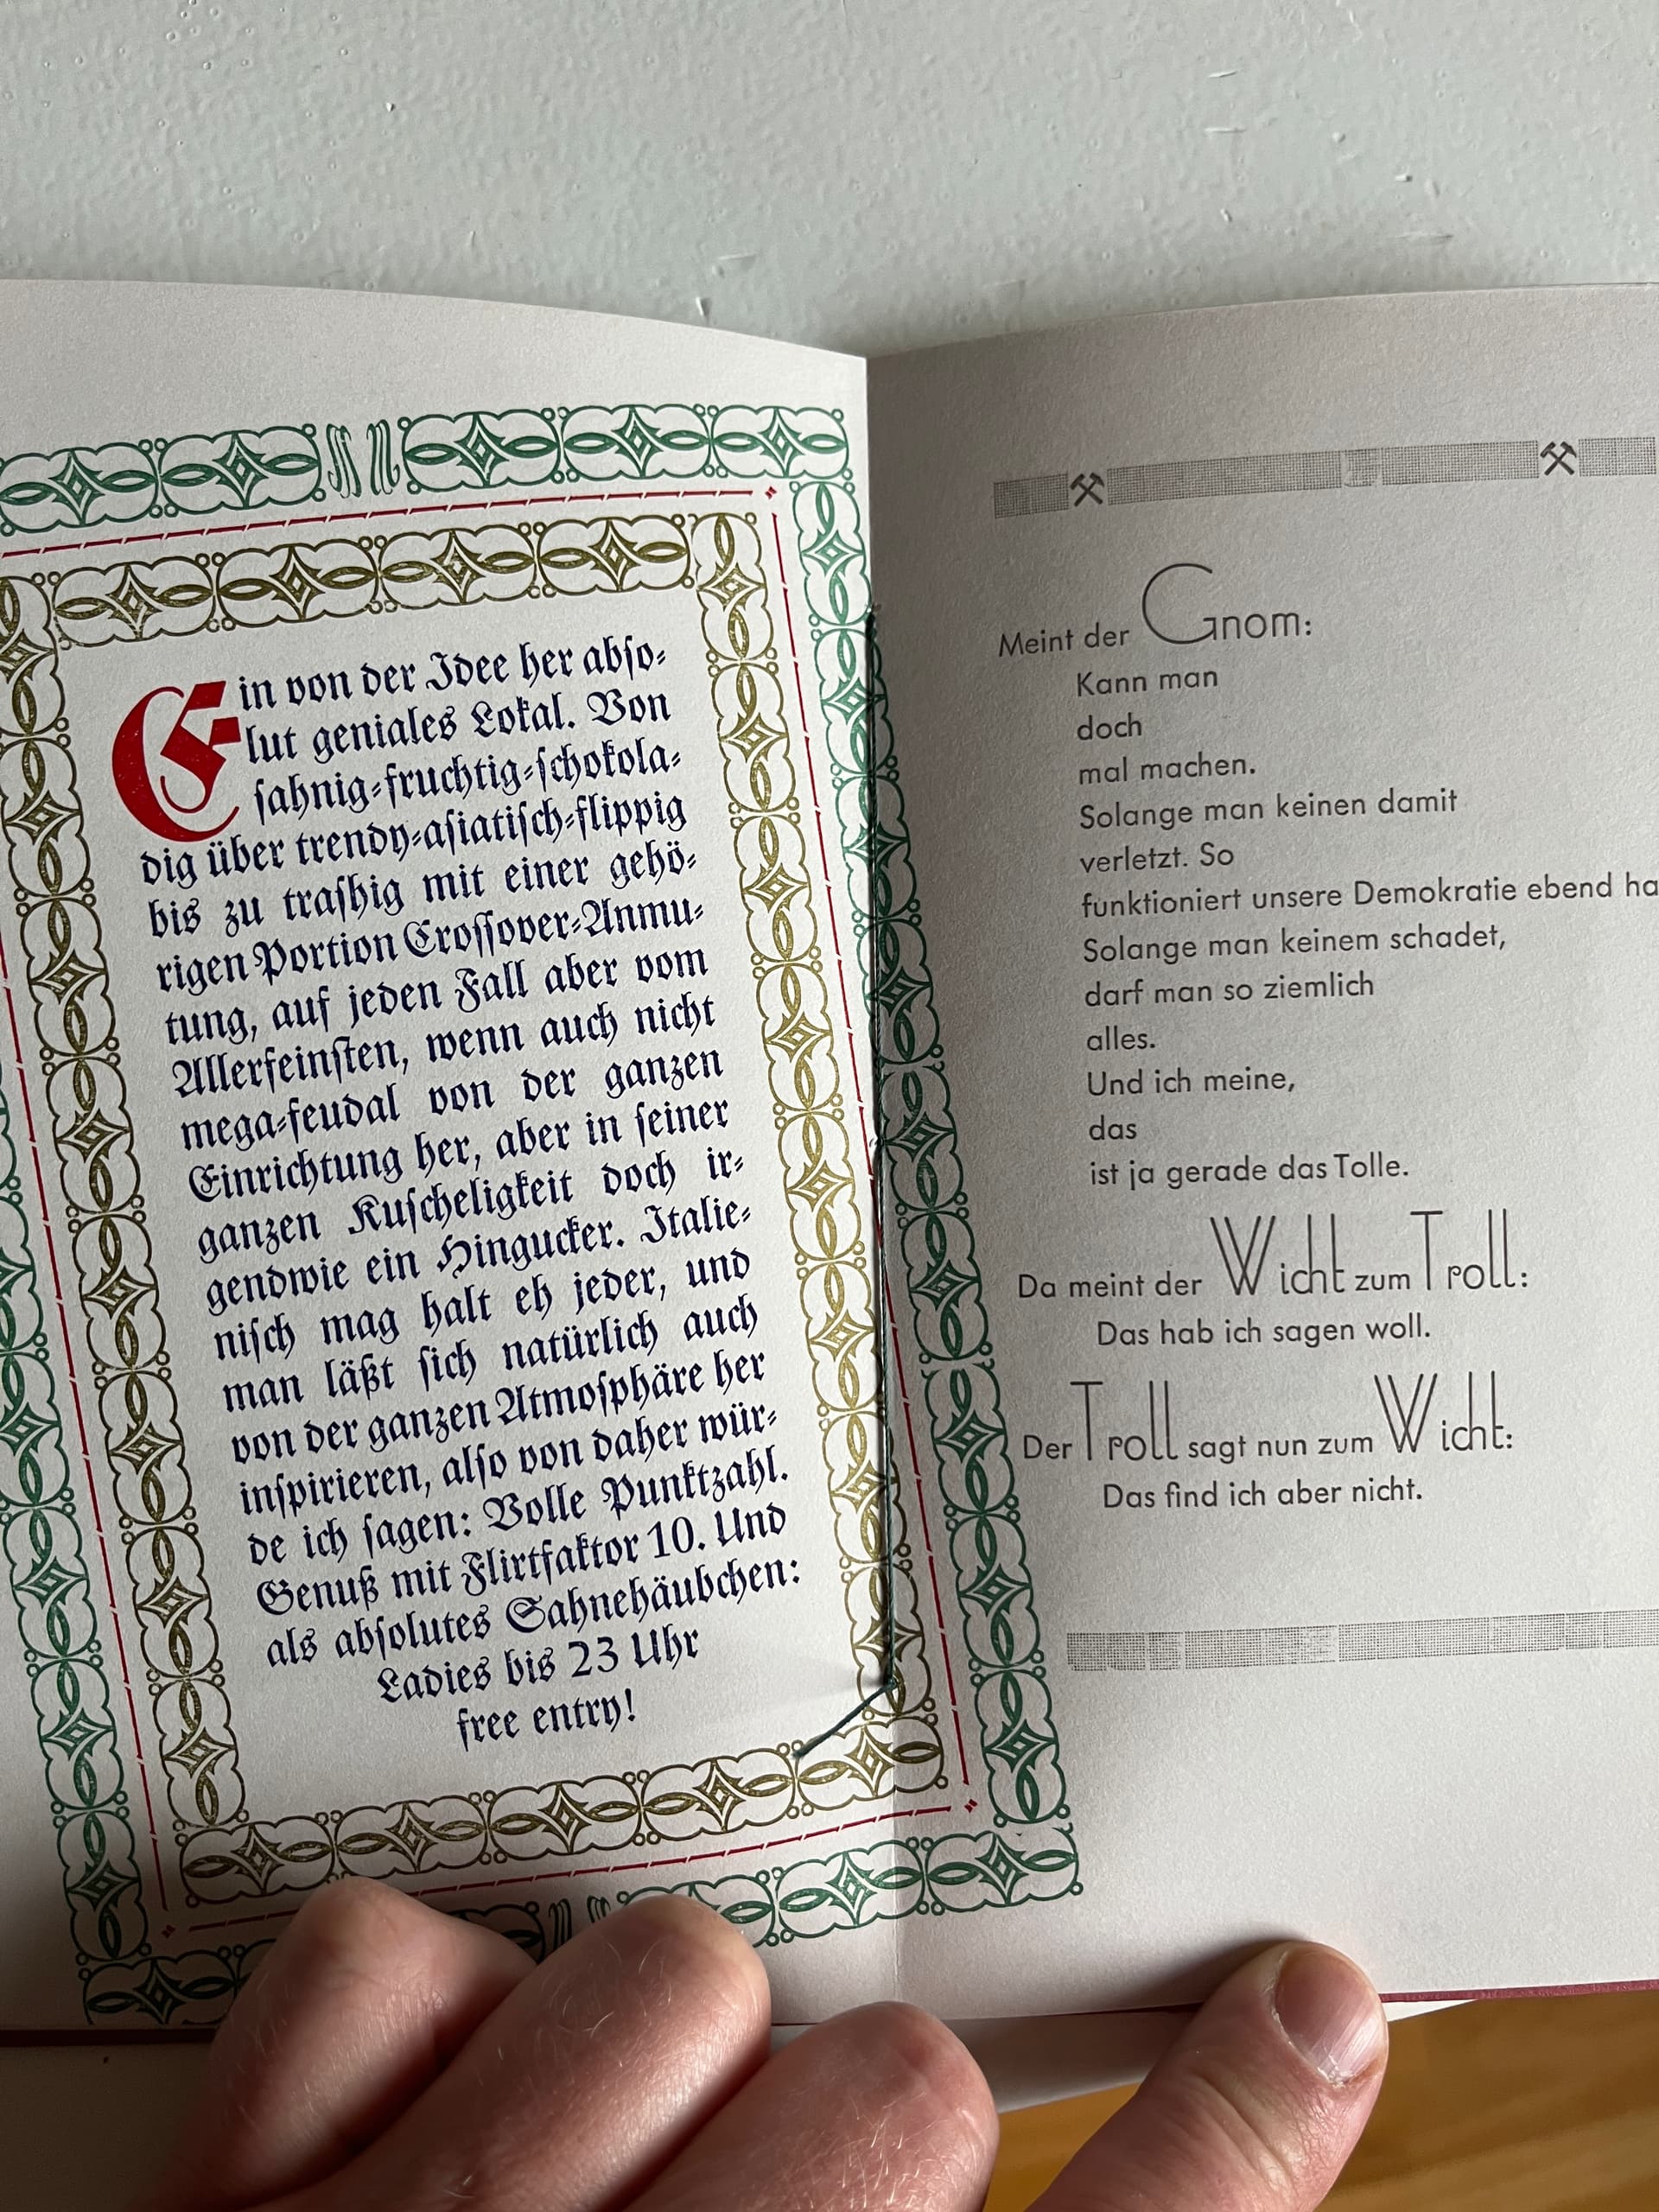 Ein von der Idee her abso-
lut geniales Lokal. Von
sahnig-fruchtig-schokola-
dig über trendy-asiatisch-flippig
bis zu trashig mit einer gehö-
rigen Portion Crossover-Anmu-
tung, auf jeden Fall aber vom
Allerfeinsten, wenn auch nicht
mega-feudal von der ganzen
Einrichtung her, aber in seiner
ganzen Kuscheligkeit doch ir-
gendwie ein Hingucker. Italie-
nisch mag halt eh jeder, und
man läßt sich natürlich auch
von der ganzen Atmosphäre her
inspirieren, also von daher wür-
de ich sagen: Volle Punktzahl.
Genuß mit Flirtfaktor 10. Und
als absolutes Sahnehäubchen:
Ladies bis 23 Uhr
free entry!
Meint der Gnom:
Kann man
doch
mal machen.
Solange man keinen damit
verletzt. So
funktioniert unsere Demokratie ebend
Solange man keinem schadet,
darf man so ziemlich
alles.
Und ich meine,
das
ist ja gerade das Tolle.
Da meint der Wicht zum Troll:
Das hab ich sagen woll.
Der Troll sagt nun zum Wicht:
Das find ich aber nicht.